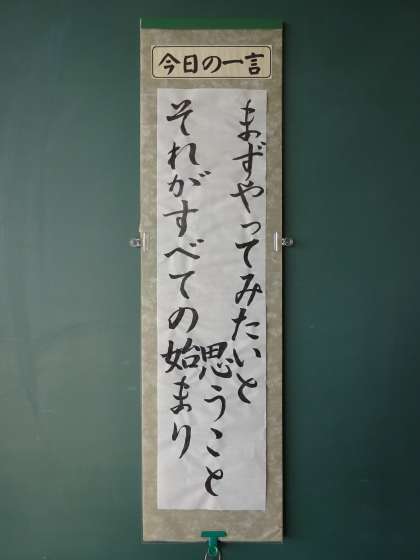 今日の一言
まずやってみたいと
思うこと
それがすべての始まり